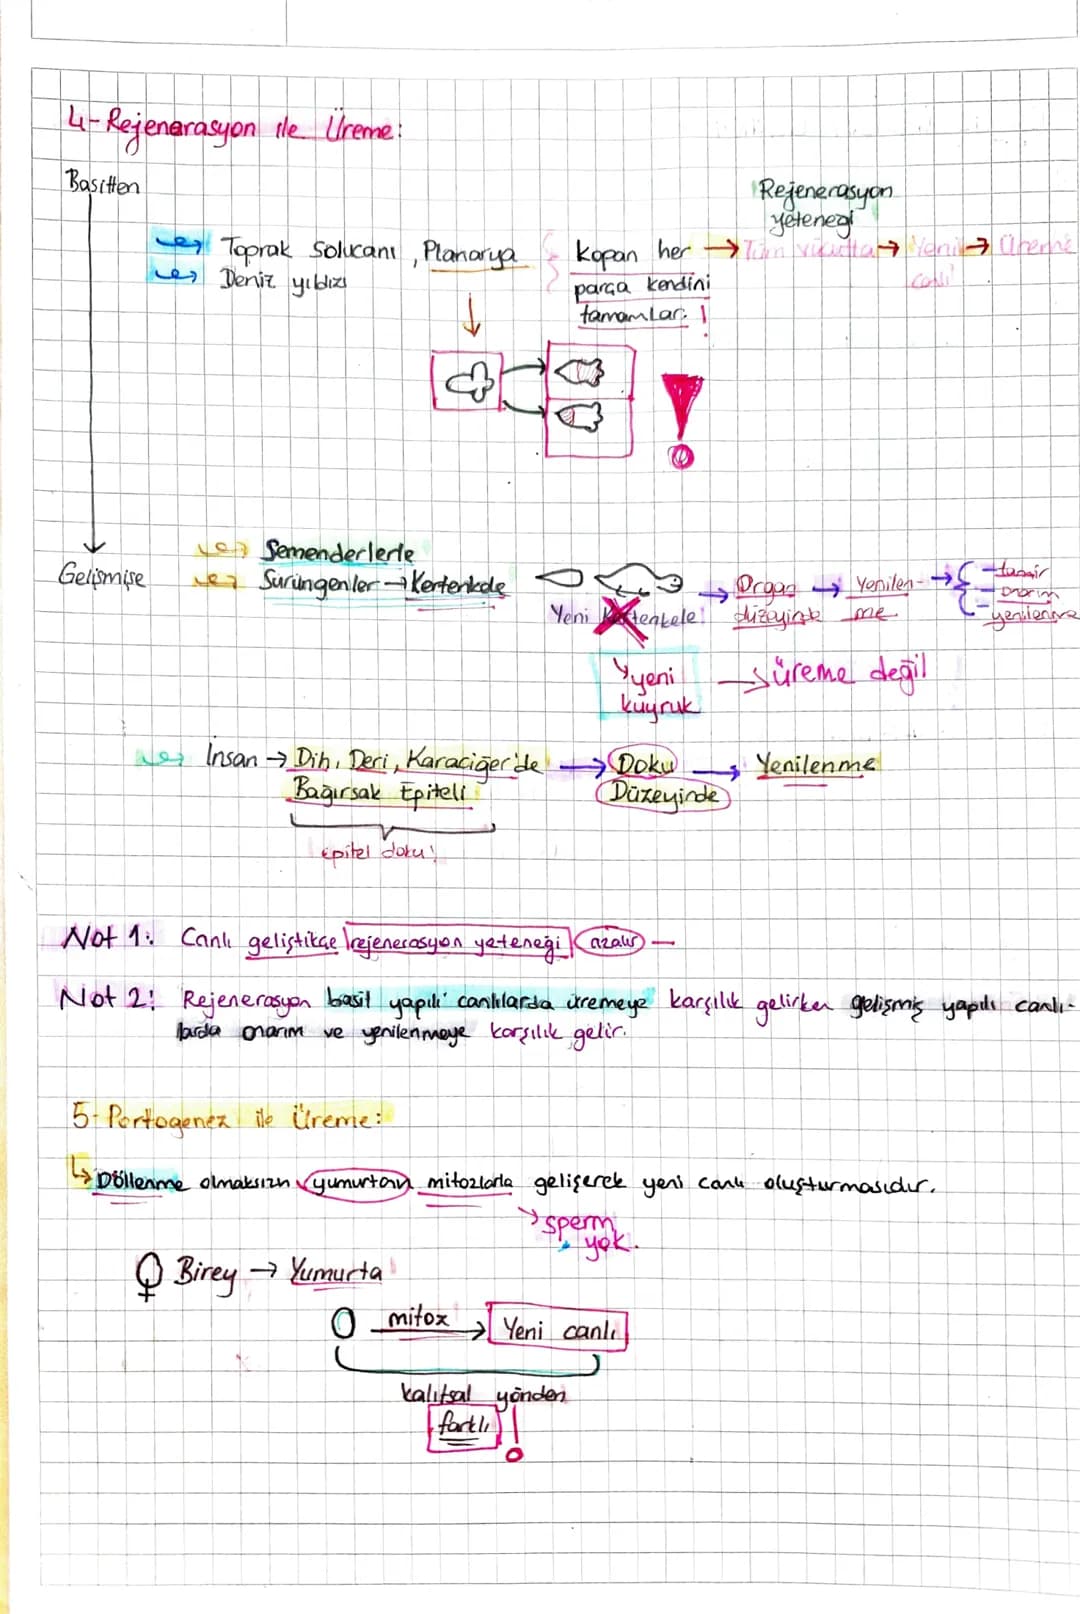 4-Rejenerasyon ile Üreme:
Basitten
Rejenerasyon
yeteneği
Toprak Solucanı, Planarya
Deniz yıldızı
Kopan her
parça kendini
tamamlar. !
→ Tüm vücutta → Yeni → Üreme
canlı
Gelişmişe
Semenderlerle
Sürüngenler → Kertenkele
Yeni Kertenkele!
yeni
kuyruk
→ Organ → Yenilen-
düzeyinde me
→ { - tamir
- onarım
- yenilenme
→ üreme değil
İnsan → Dil, Deri, Karaciğer'de → Doku → Yenilenme
Bağırsak Epiteli Düzeyinde
epitel doku!
Not 1: Canlı geliştikçe rejenerasyon yeteneği azalır
Not 2: Rejenerasyon basit yapılı canlılarda üremeye karşılık gelirken gelişmiş yapılı canlı-
larda onarım ve yenilenmeye karşılık gelir.
5-Partogenez ile Üreme:
↳ Döllenme olmaksızın yumurtanın mitozlarla gelişerek yeni canlı oluşturmasıdır.
sperm
yok.
♀ Birey → Yumurta
0 mitoz → Yeni canlı
kalıtsal yönden
farklı !